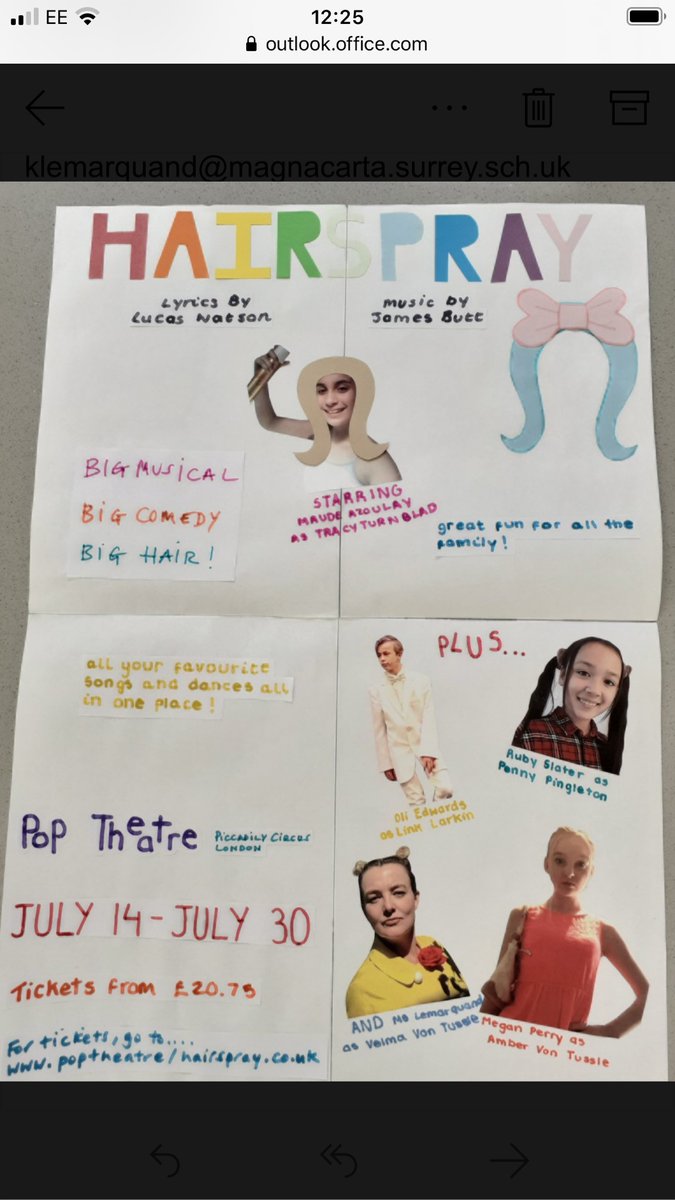 EE
12:25
outlook.office.com
klemarquand@magnacarta.surrey.sch.uk
HAIRSPRAY
Lyrics By
Lucas Watson
music by
James Butt
BIG MUSICAL
BIG COMEDY
BIG HAIR!
STARRING
MAUDE AZOULAY
AS TRACY TURNBLAD
great fun for all the
family!
all your favourite
songs and dances all
in one place!
PLUS...
Oli Edwards
as Link Larkin
Ruby Slater as
Penny Pingleton
Pop Theatre
Piccadily Circus
LONDON
JULY 14-JULY 30
Tickets from £20.75
For tickets, go to....
www.poptheatre/hairspray.co.uk
AND Ms Lemarquand
as Velma Von Tussle
Megan Perry as
Amber Von Tussle